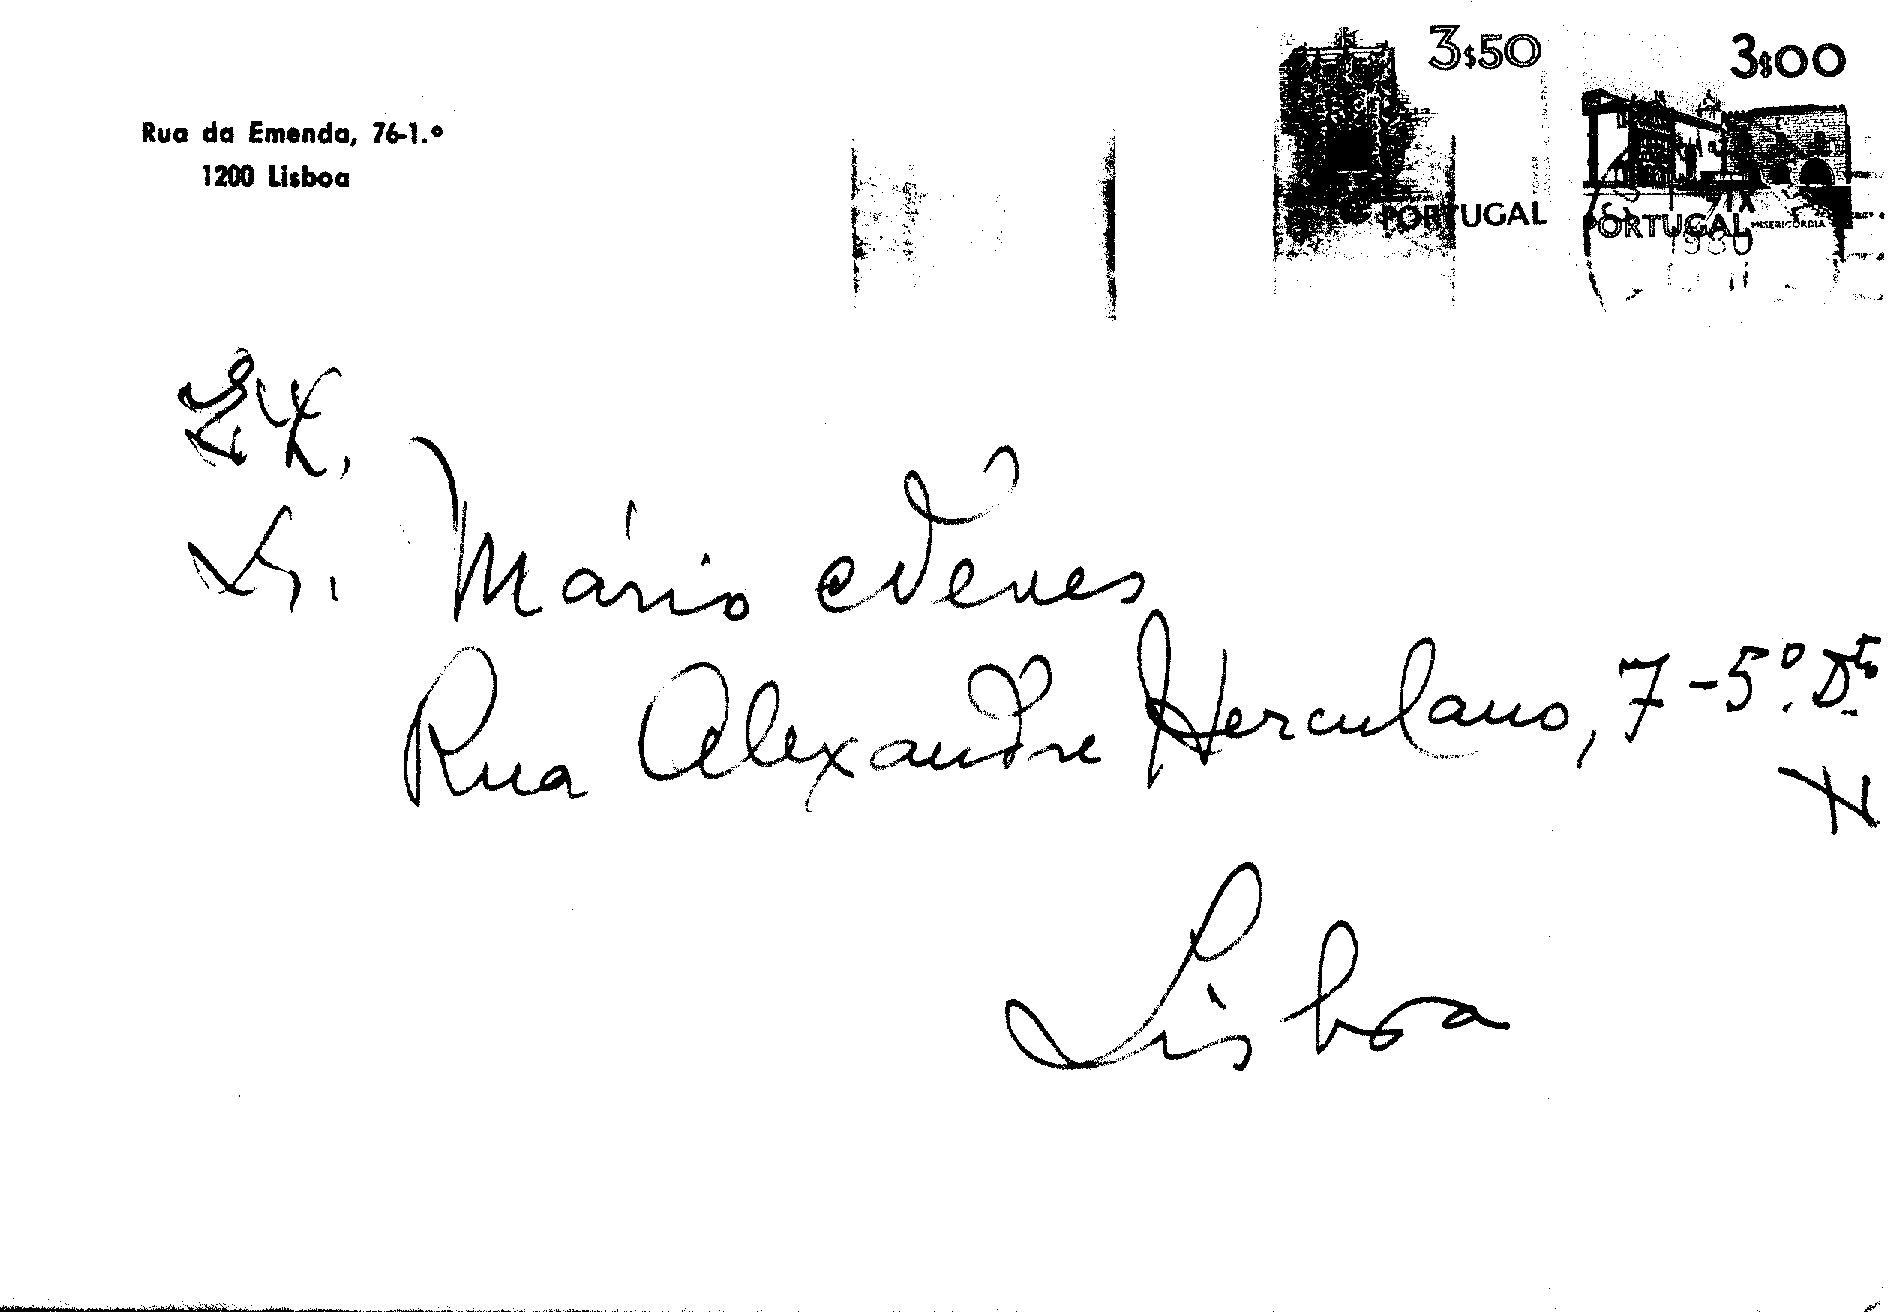 Rua da Emenda, 76-1.º
1200 Lisboa
3$50
PORTUGAL
3$00
PORTUGAL
MISERICORDIA
1980
Dr. Mário Neves
Rua Alexandre Herculano, 7-5º. Dto
Lisboa